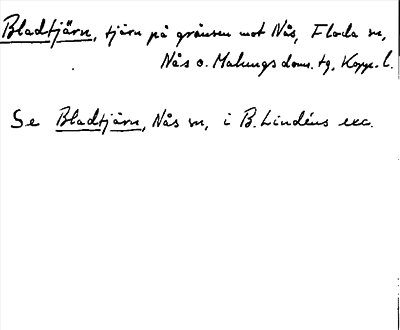 Bladtjärn, tjärn på gränsen mot Nås, Floda sn,
Nås o. Malungs doms. tg, Kopp. l.
Se Bladtjärn, Nås sn, i B. Lindéns exc.